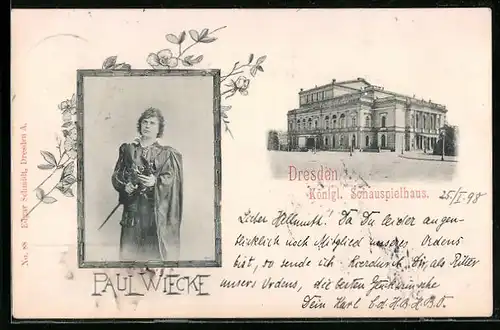 No. 88 Edgar Schmidt, Dresden A.
PAUL WIECKE
Dresden.
Königl. Schauspielhaus.
25/I. 98
Lieber Hellmuth! Da Du leider augen-
blicklich noch Mitglied unseres Ordens
bist, so sende ich hierdurch Dir, als Ritter
unsers Ordens, die besten Glückwünsche
Dein Karl